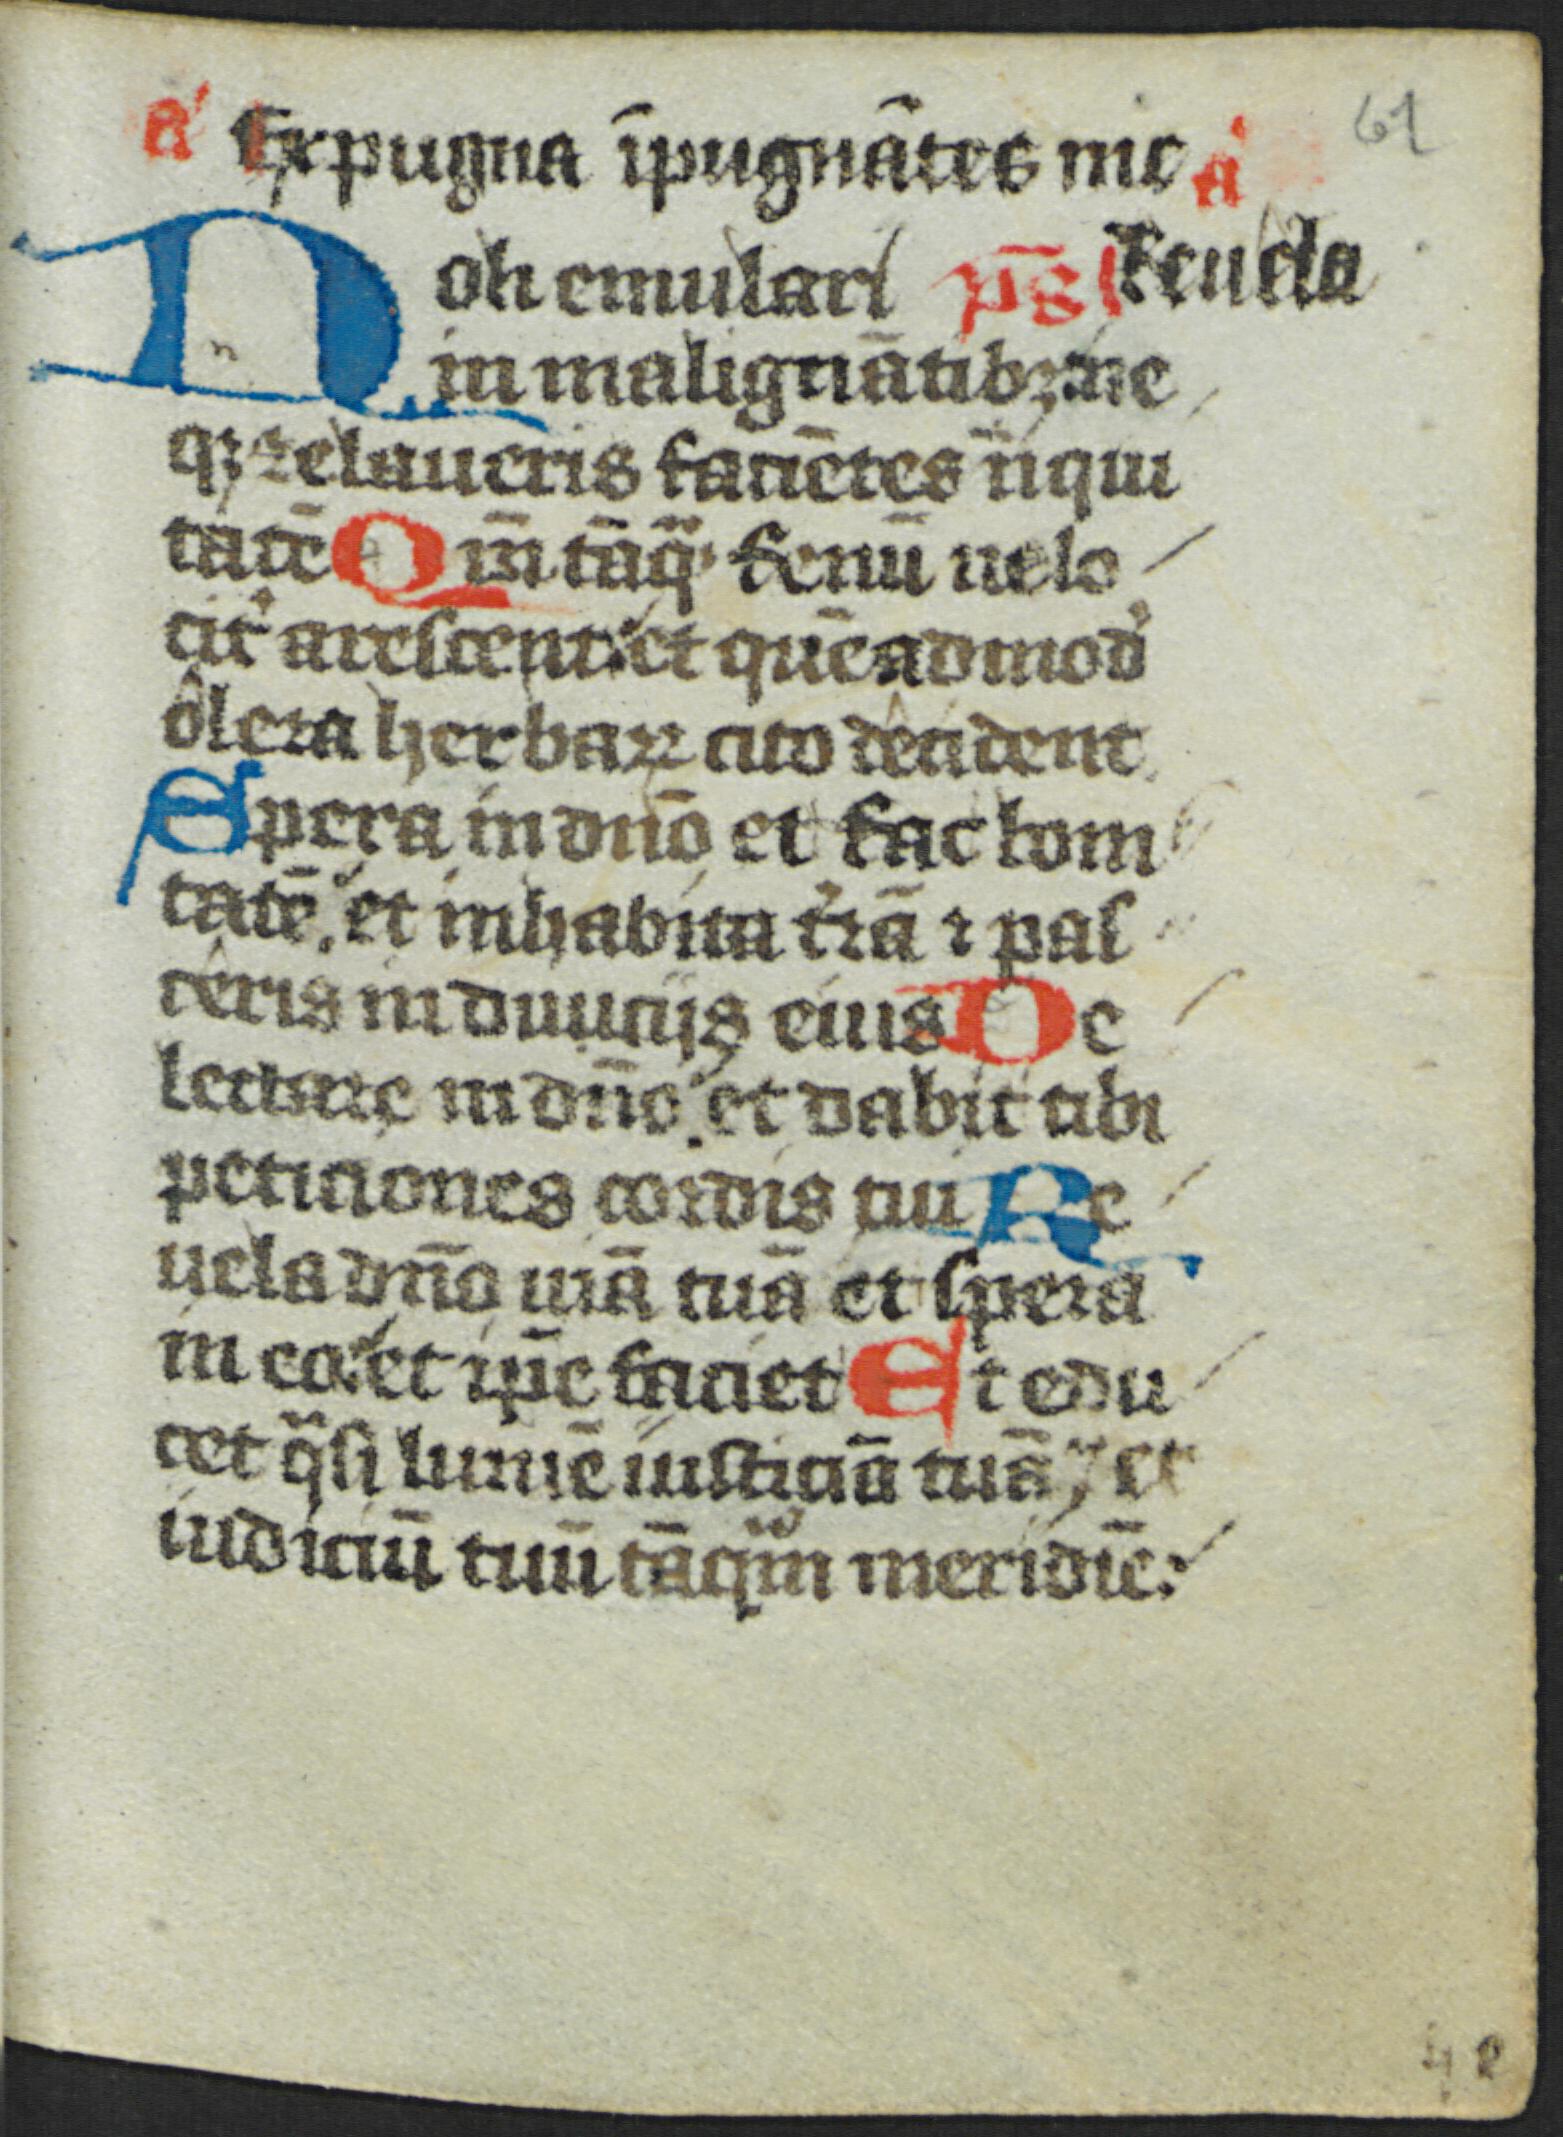 61
a' Expugna īpugnātes me a'
Noli emulari ps̄ Reuela
in malignātibꝫ: ne
qꝫ zelaueris faciētes īiqui
tatē Qm̄ tāqͣ fenū uelo
cit' arescent: et quēadmod'
olera herbaꝝ cito decident
Spera in dn̄o et fac boni
tatē: et inhabita t'rā ⁊ pas
ceris in diuicijs eius De
lectare in dn̄o: et dabit tibi
peticiones cordis tui Re
uela dn̄o uiā tuā et spera
in eo: et ip̄e faciet Et edu
cet qͣsi lumē iusticiā tuā: et
iudiciū tuū tāqͣm meridiē:
48